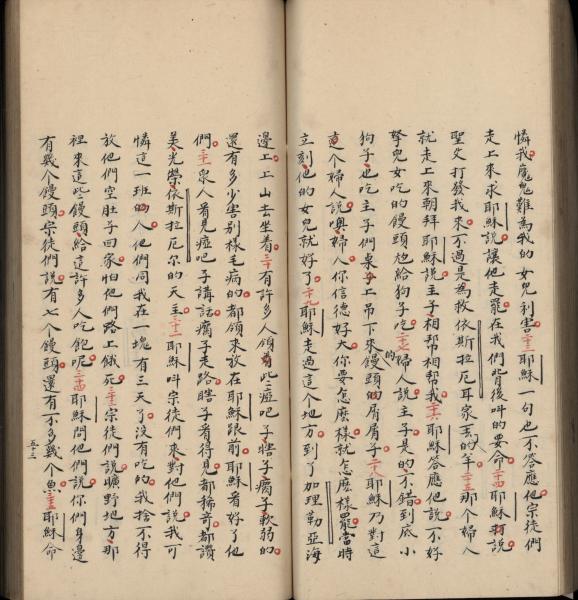 憐我魔鬼難為我的女兒利害二十三耶穌一句也不答應他宗徒們
走上來求耶穌說讓他走罷在我們背後叫的要命二十四耶穌說
聖父打發我來不過是為救依斯拉厄耳家丟的羊二十五那個婦人
就走上來朝拜耶穌說主子相幫相幫我二十六耶穌答應他說不好
拏兒女吃的饅頭給狗子吃二十七婦人說主子是的不錯到底小
狗子也吃主子們桌子上吊下來的饅頭的屑屑子二十八耶穌乃對這
這個婦人說噢婦人你信德好大你要怎麽樣就怎麽樣罷當時
立刻他的女兒就好了二十九耶穌走過這個地方到了加理勒亞海
邊上上山去坐着三十有許多人領着些瘂吧子瞎子瘸子軟弱的
還有多少害別樣毛病的都領來放在耶穌跟前耶穌看好了他
們三十一衆人看見瘂吧子講話瘸子走路瞎子看得見都稀奇都讚
美光榮依斯拉厄尔的天主三十二耶穌叫宗徒們來對他們說我可
憐這一班的人他們同我在一塊有三天了沒有吃的我捨不得
放他們空肚子回家怕他們路上餓死三十三宗徒們說曠野地方那
裡來這些饅頭給這許多人吃飽呢三十四耶穌問他們說你們身邊
有幾个饅頭宗徒們說有七个饅頭還有一不多幾个魚三十五耶穌命
五十三